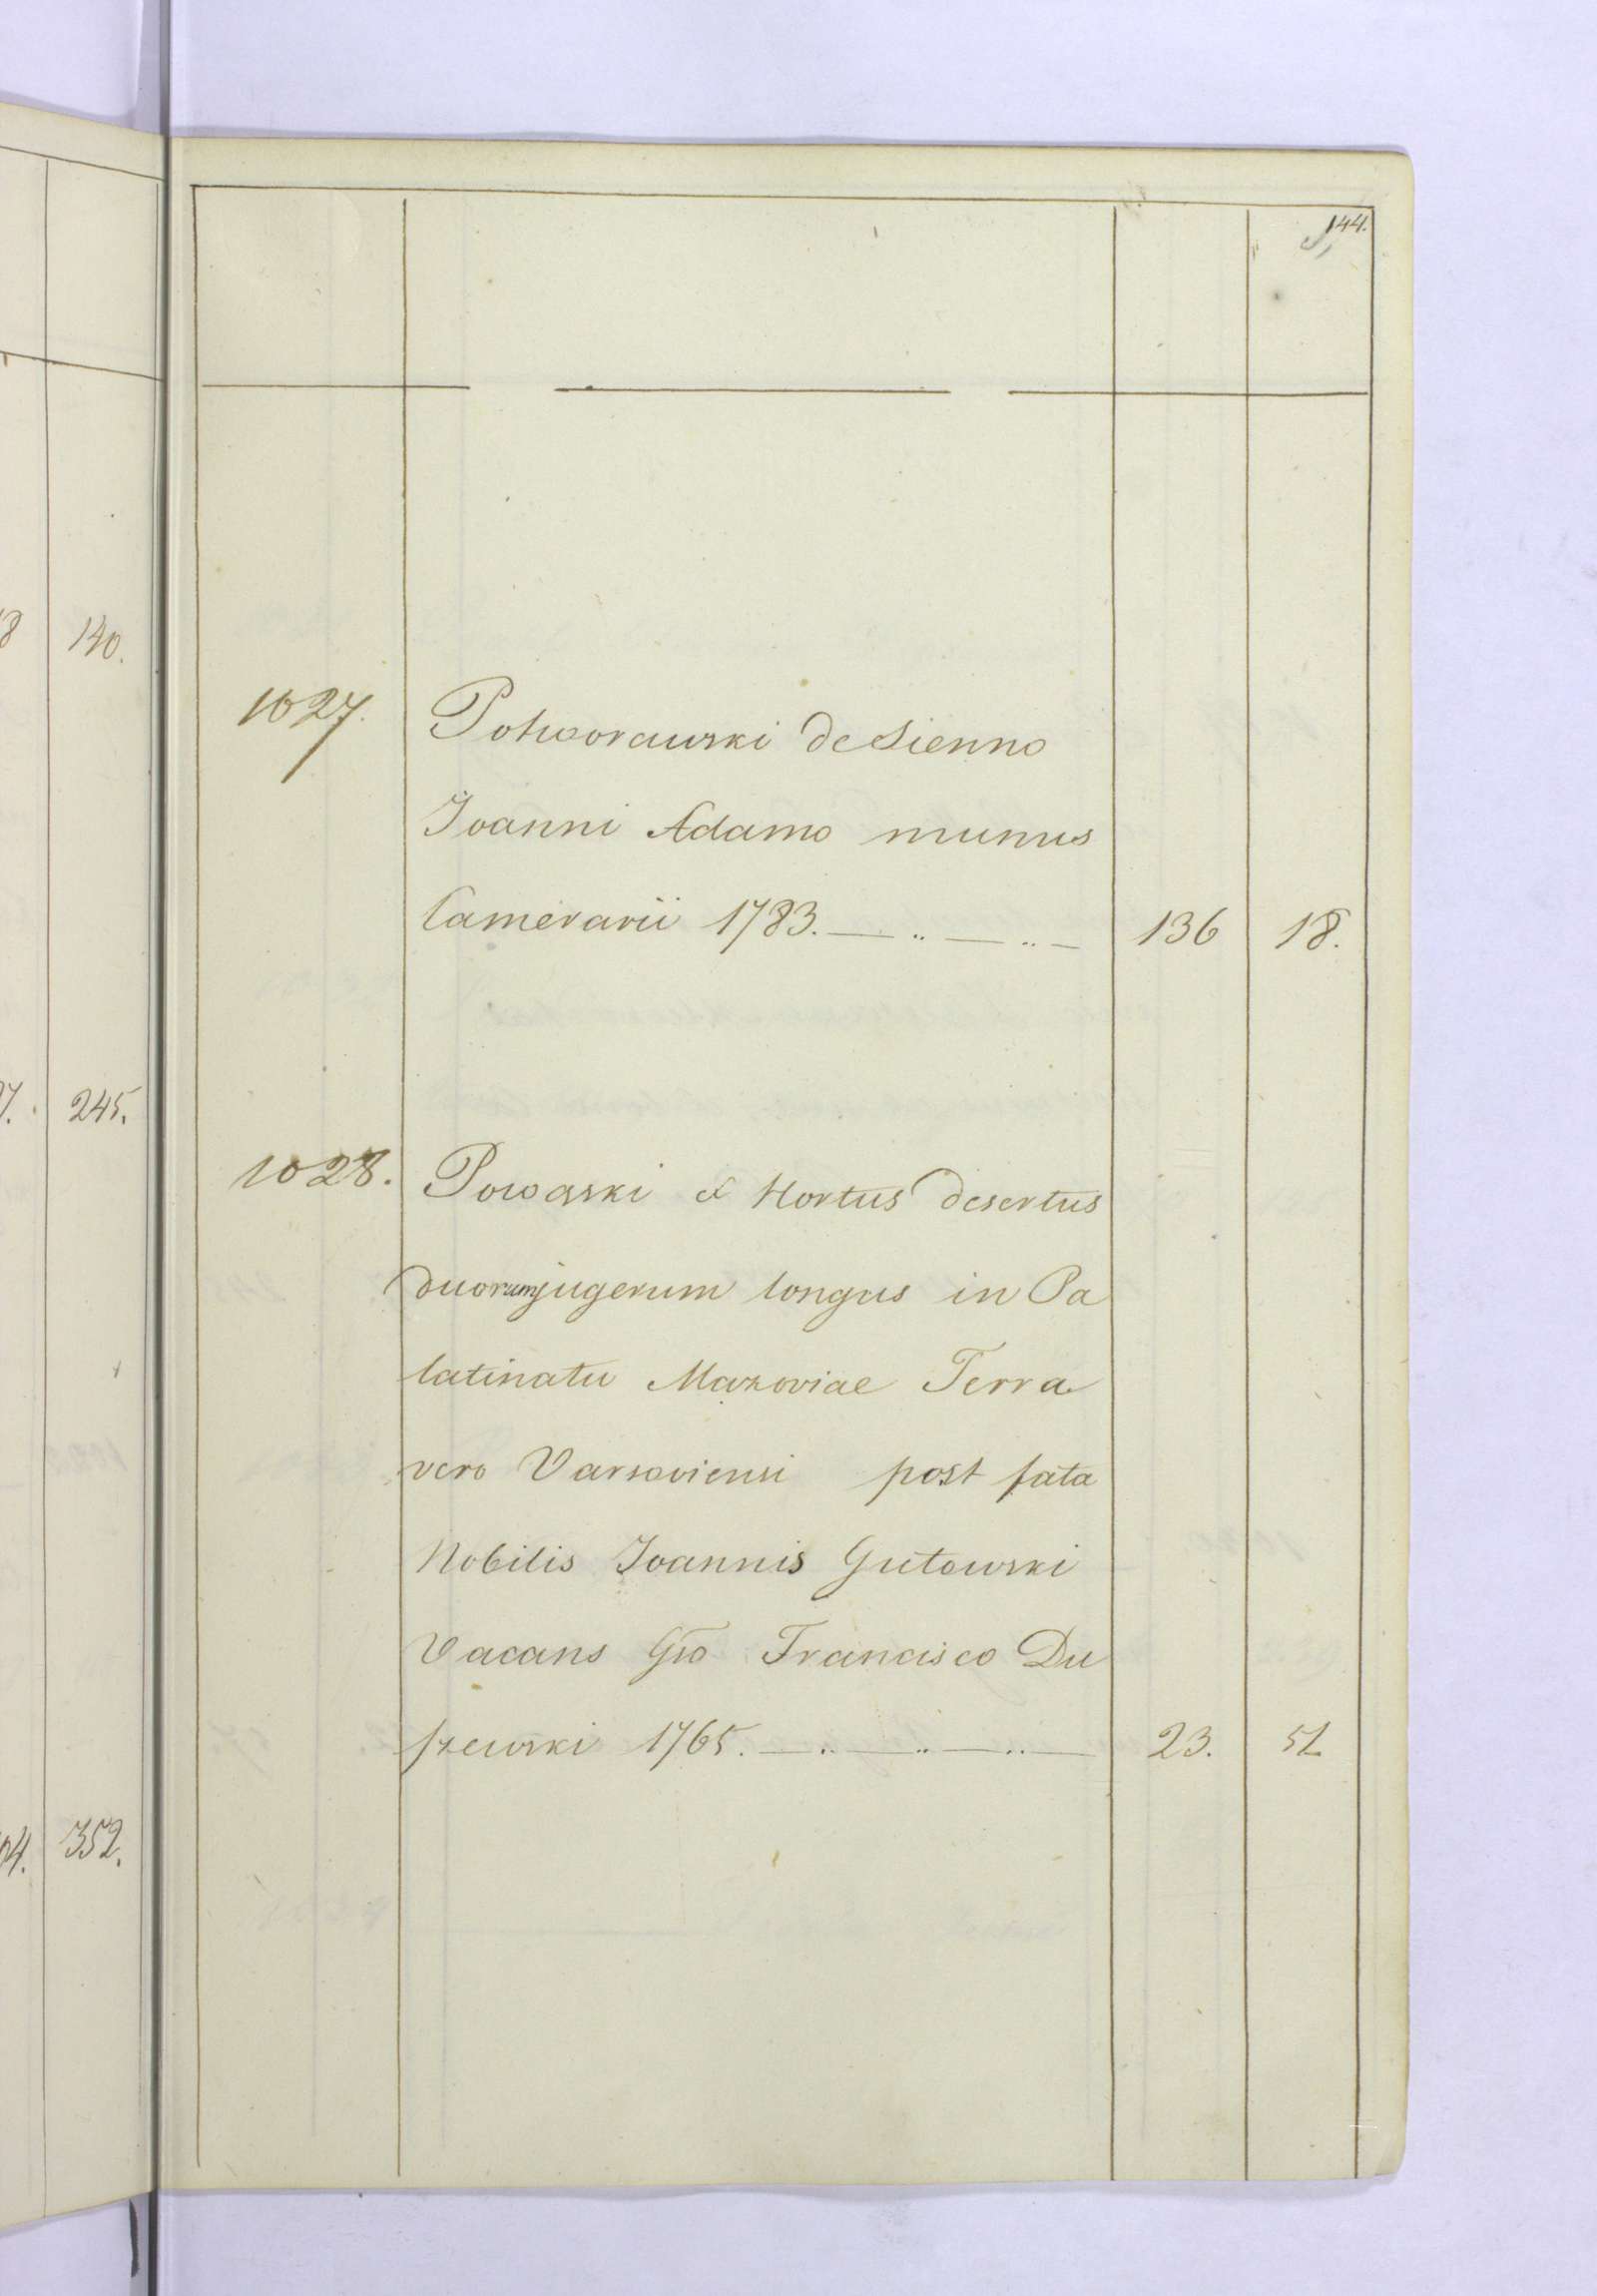 144.
140.
245.
352.
1027.
Potworowski de Sienno
Joanni Adamo munus
Camerarii 1783. 136 18.
1028. Powąski et Hortus desertus
duorum jugerum longus in Pa
latinatu Mazoviae Terra
vero Varsoviensi post fata
Nobilis Joannis Gutowski
Vacans Gso Francisco Du
szewski 1765. 23. 51